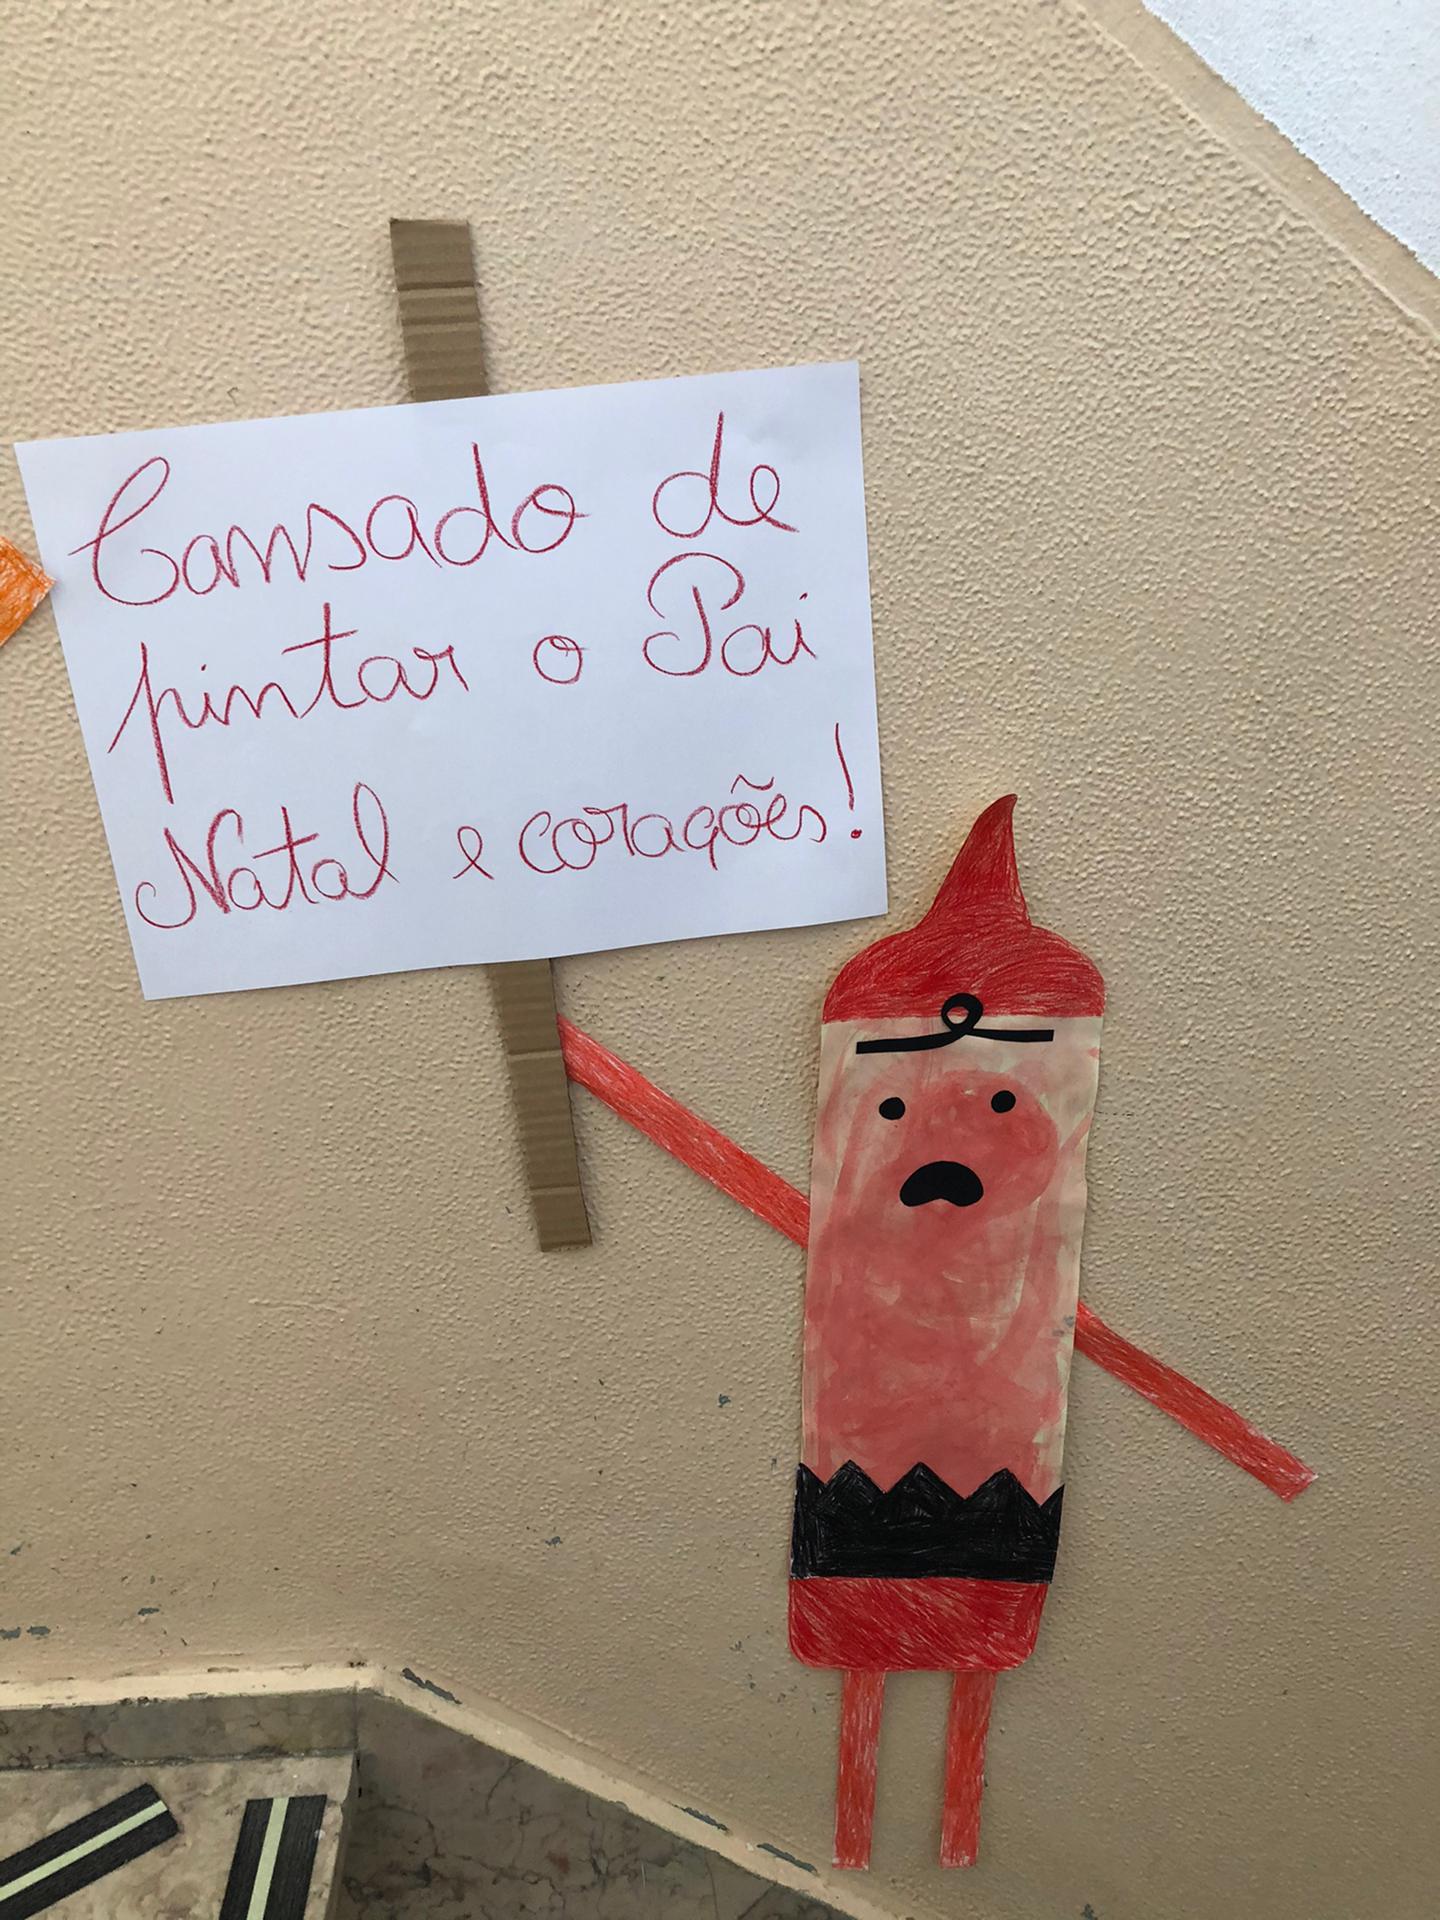 Cansado de
pintar o Pai
Natal e corações!